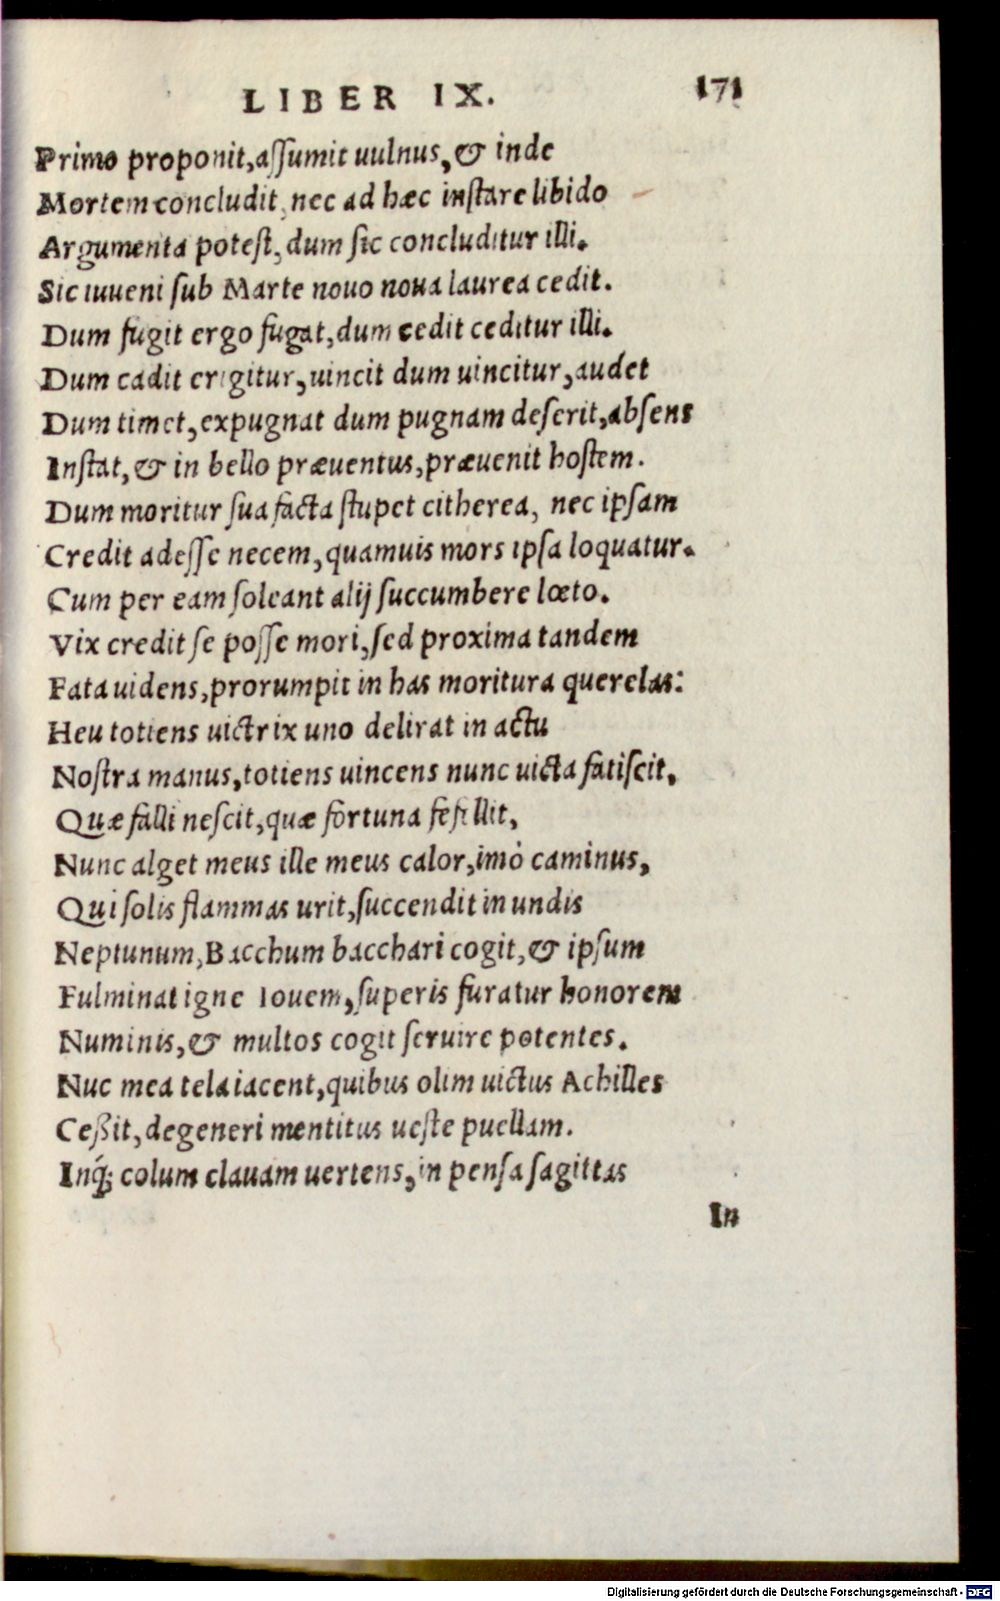 LIBER IX. 171
Primo proponit,assumit uulnus,& inde
Mortem concludit, nec ad hæc instare libido
Argumenta potest, dum sic concluditur illi.
Sic iuueni sub Marte nouo noua laurea cedit.
Dum fugit ergo fugat,dum cedit ceditur illi.
Dum cadit erigitur,uincit dum uincitur,audet
Dum timet,expugnat dum pugnam deserit,absens
Instat,& in bello præuentus,præuenit hostem.
Dum moritur sua facta stupet citherea, nec ipsam
Credit adesse necem,quamuis mors ipsa loquatur.
Cum per eam soleant alij succumbere lœto.
Vix credit se posse mori,sed proxima tandem
Fata uidens,prorumpit in has moritura querelas:
Heu totiens uictrix uno delirat in actu
Nostra manus,totiens uincens nunc uicta fatiscit,
Quæ falli nescit,quæ fortuna fefellit,
Nunc alget meus ille meus calor,imò caminus,
Qui solis flammas urit,succendit in undis
Neptunum,Bacchum bacchari cogit,& ipsum
Fulminat igne Iouem,superis furatur honorem
Numinis,& multos cogit seruire potentes.
Nuc mea tela iacent,quibus olim uictus Achilles
Ceßit,degeneri mentitus ueste puellam.
Inq́; colum clauam uertens,in pensa sagittas
In
Digitalisierung gefördert durch die Deutsche Forschungsgemeinschaft - DFG